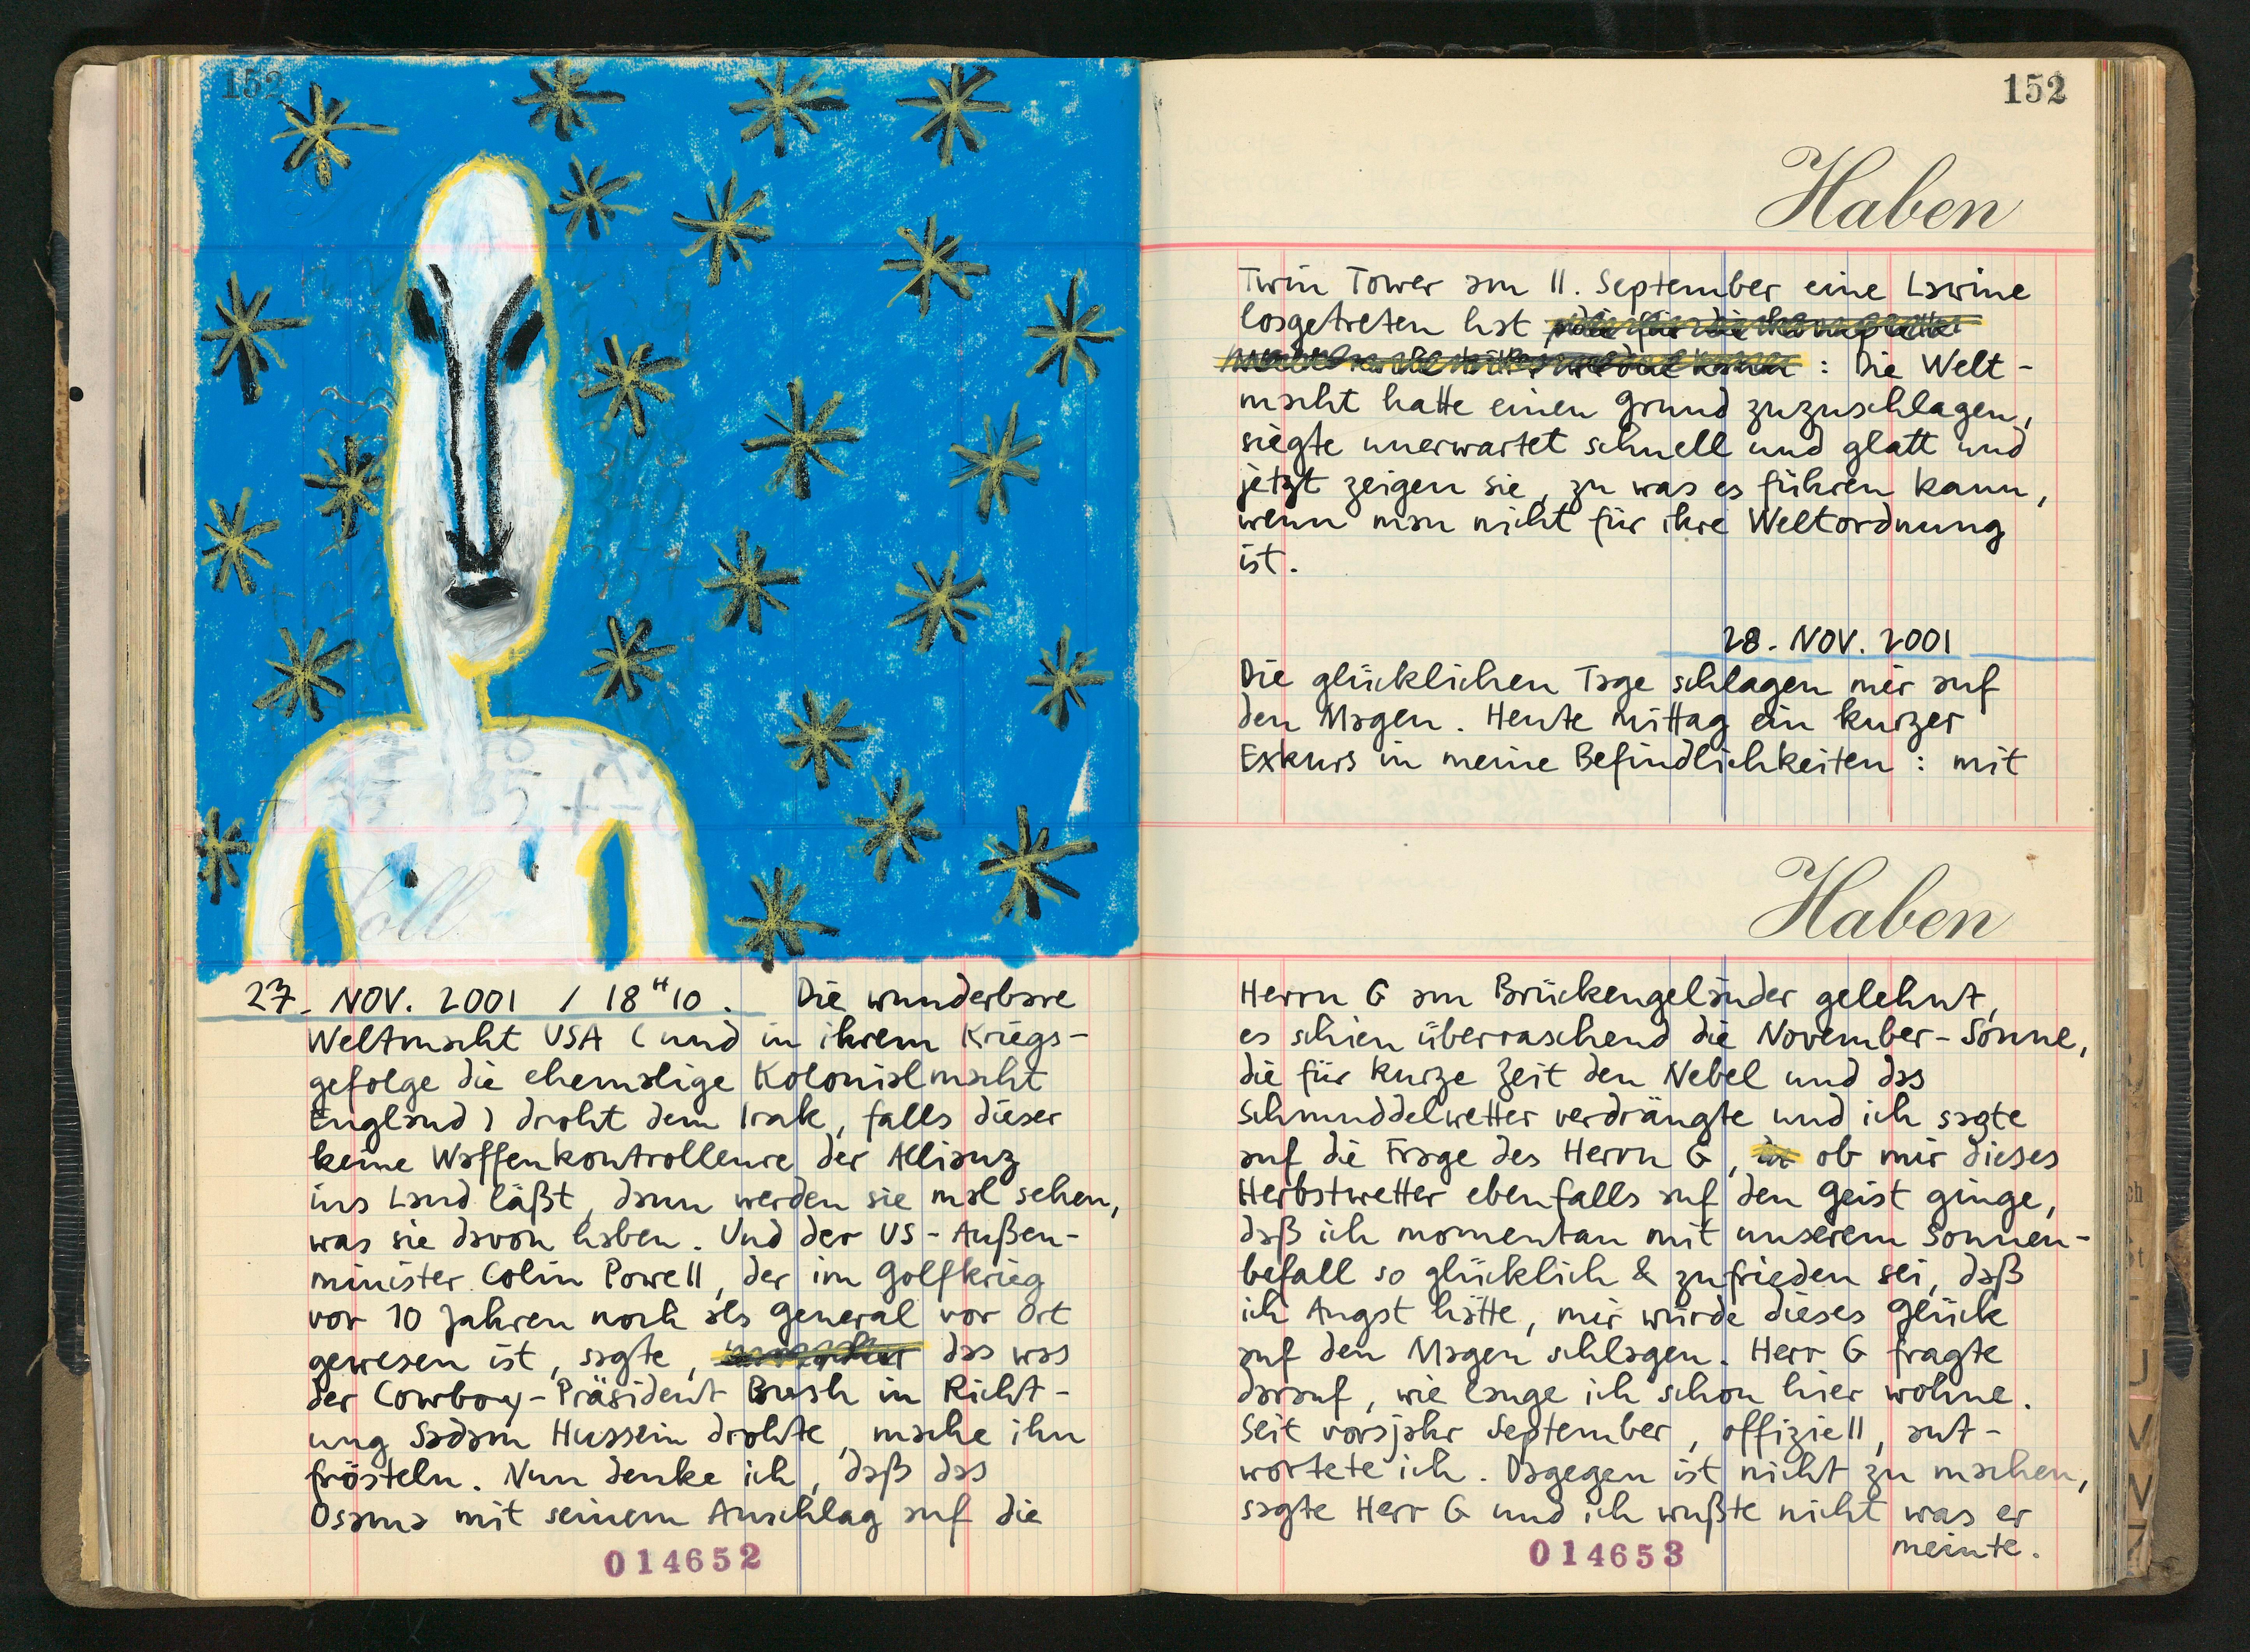 152
Soll
27. NOV. 2001 / 18 H 10. Die wunderbare
Weltmacht USA (und in ihrem Kriegs-
gefolge die ehemalige Kolonialmacht
England) droht dem Irak, falls dieser
keine Waffenkontrolleure der Allianz
ins Land läßt, dann werden sie mal sehen,
was sie davon haben. Und der US-Außen-
minister Colin Powell, der im Golfkrieg
vor 10 Jahren noch als General vor Ort
gewesen ist, sagte, das was
der Cowboy-Präsident Bush in Richt-
ung Sadam Hussein drohte, mache ihn
frösteln. Nun denke ich, daß das
Osama mit seinem Anschlag auf die
014652
152
Haben
Twin Tower am 11. September eine Lawine
losgetreten hat
: Die Welt-
macht hatte einen Grund zuzuschlagen,
siegte unerwartet schnell und glatt und
jetzt zeigen sie, zu was es führen kann,
wenn man nicht für ihre Weltordnung
ist.
28. NOV. 2001
Die glücklichen Tage schlagen mir auf
den Magen. Heute mittag ein kurzer
Exkurs in meine Befindlichkeiten: mit
Haben
Herrn G am Brückengeländer gelehnt,
es schien überraschend die November-Sonne,
die für kurze Zeit den Nebel und das
Schmuddelwetter verdrängte und ich sagte
auf die Frage des Herrn G, ob mir dieses
Herbstwetter ebenfalls auf den Geist ginge,
daß ich momentan mit unserem Sonnen-
befall so glücklich & zufrieden sei, daß
ich Angst hätte, mir würde dieses Glück
auf den Magen schlagen. Herr G fragte
darauf, wie lange ich schon hier wohne.
Seit vorsjahr September, offiziell, ant-
wortete ich. Dagegen ist nicht zu machen,
sagte Herr G und ich wußte nicht was er
meinte.
014653